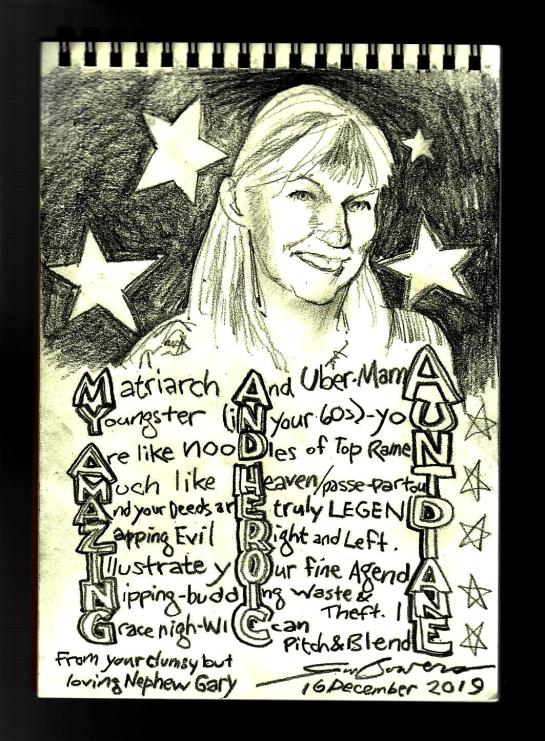 Matriarch And Uber-MamA
Youngster (iN your 60s)-yoU
Are like nooDles of Top RameN
Much like Heaven/passe-partouT
And your Deeds arE truly LEGEND
Zapping Evil Right and Left. I
Illustrate yOur fine AgendA
Nipping-buddIng Waste & Theft. IN
Grace nigh-WiCcan Pitch&BlendE
From your clumsy but
loving Nephew Gary
16 December 2019